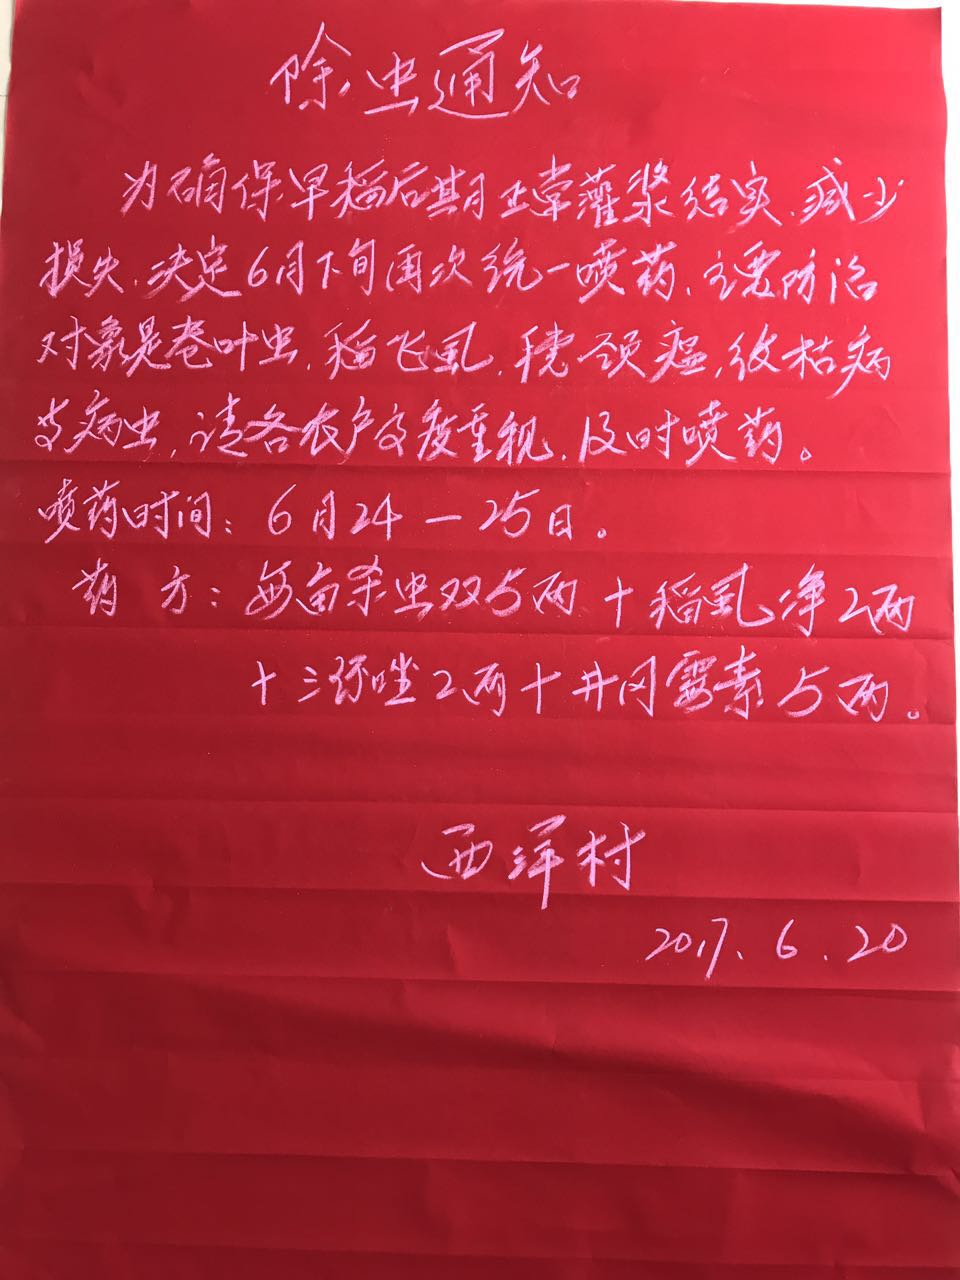 除虫通知
为确保早稻后期正常灌浆结实、减少
损失、决定6月下旬再次统一喷药、主要防治
对象是卷叶虫、稻飞虱、穗颈瘟、纹枯病
等病虫,请各农户高度重视、及时喷药。
喷药时间:6月24—25日。
药方:每亩杀虫双5两+稻虱净2两
+三环唑2两+井冈霉素5两。
西洋村
2017.6.20